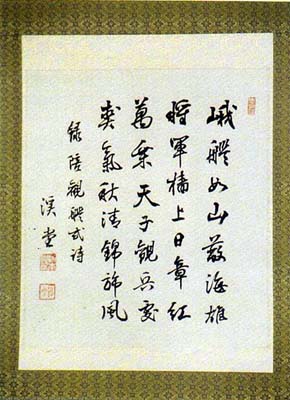 峨艦如山蔽海雄
將軍檣上日章紅
萬乘天子觀兵處
爽氣秋清錦旆風
録陪觀艦式詩
溪堂